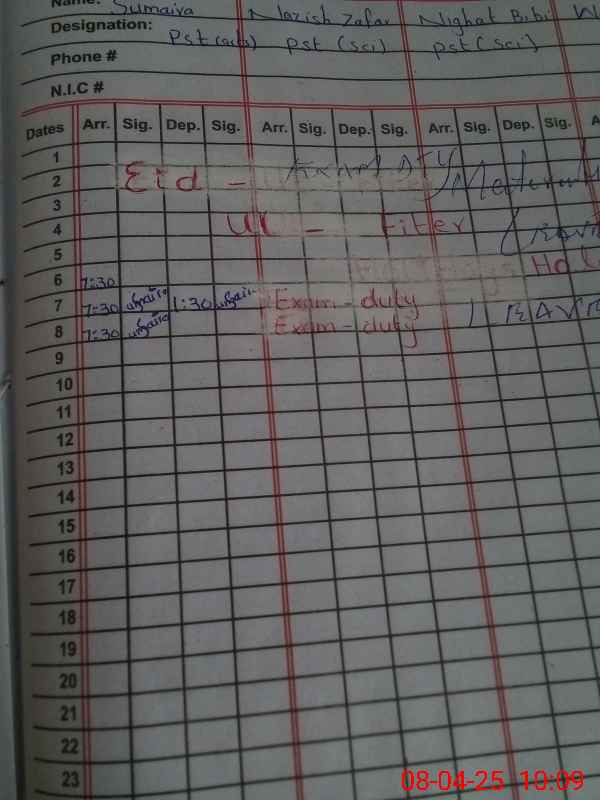 Name: Sumaira Nazish Zafar Nighat Bibi
Designation: Pst (arts) pst (sci) pst (sci)
Phone #
N.I.C #
Dates Arr. Sig. Dep. Sig. Arr. Sig. Dep. Sig. Arr. Sig. Dep. Sig.
1
2 Eid -
3
4 ul - Fiter
5
6 7=30
7 7=30 1:30 Exam - duty
8 7=30 Exam - duty LEAVE
9
10
11
12
13
14
15
16
17
18
19
20
21
22
23
08-04-25 10:09